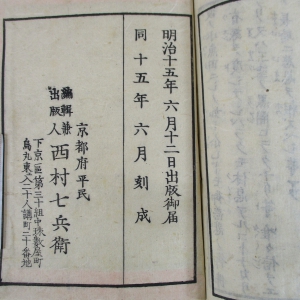 明治十五年六月十二日出版御届
同十五年六月刻成
京都府平民
編輯兼
出版人
西村七兵衛
下京區第三十組中珠數屋町
烏丸東入二十八講町二十番地